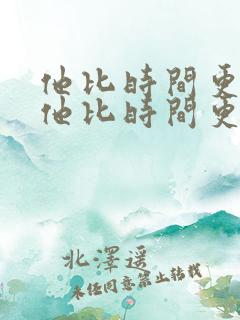 他比時間更
他比時間更
北澤遥
未任同意禁止转载